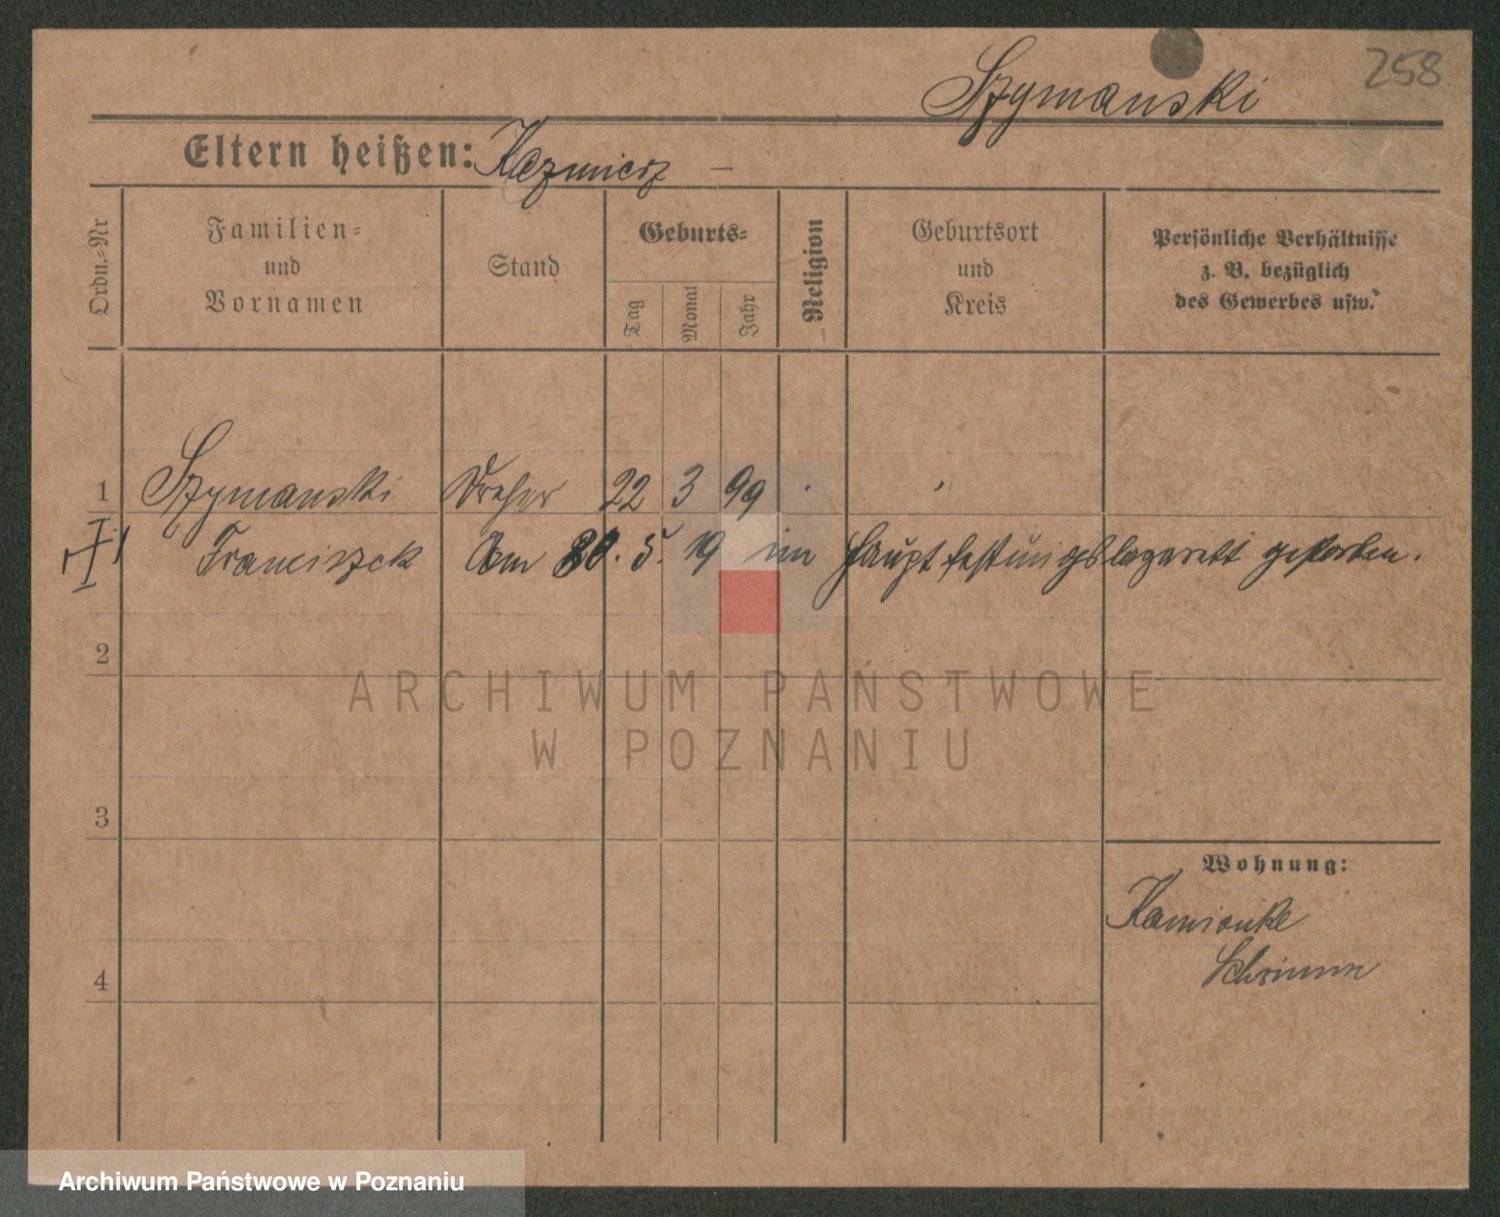 258
Szymanski
Eltern heißen: Kazmierz –
Ordn.=Nr
Familien=
und
Vornamen
Stand
Geburts=
Tag
Monat
Jahr
Religion
Geburtsort
und
Kreis
Persönliche Verhältnisse
z. B. bezüglich
des Gewerbes usw.
1 Szymanski Dreher 22 3 99
Franciszek Am 30. 5. 19 im Hauptfestungslazarett gestorben.
2
3
4
Wohnung:
Kamionke
Schrimm
ARCHIWUM PAŃSTWOWE
W POZNANIU
Archiwum Państwowe w Poznaniu